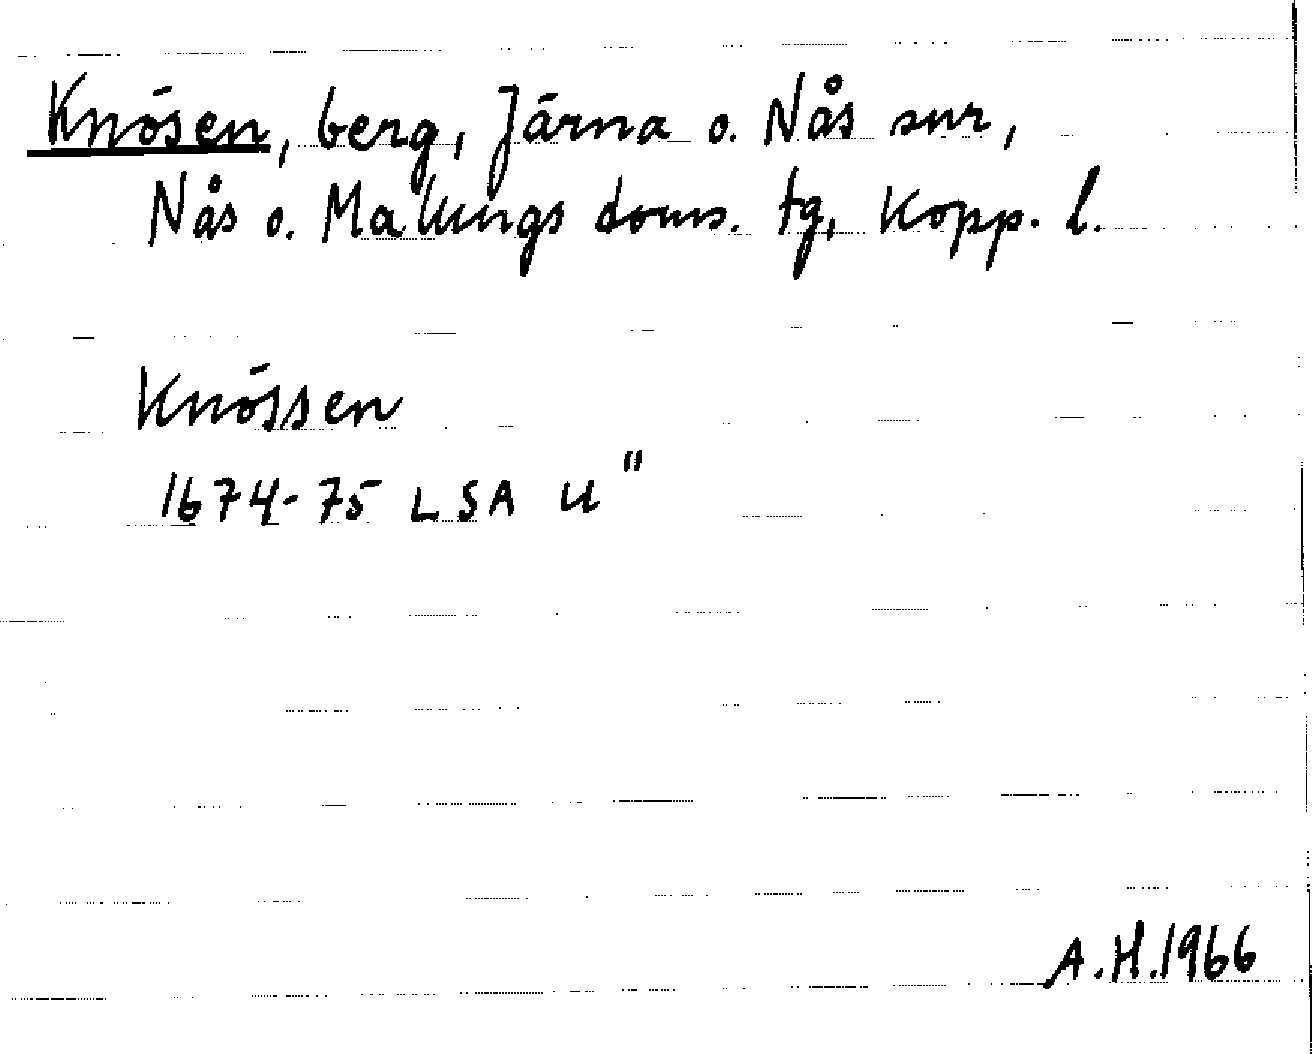 Knösen, berg, Järna o. Nås snr,
Nås o. Malungs doms. tg, Kopp. l.
Knössen
1674-75 LSA U"
A.H.1966